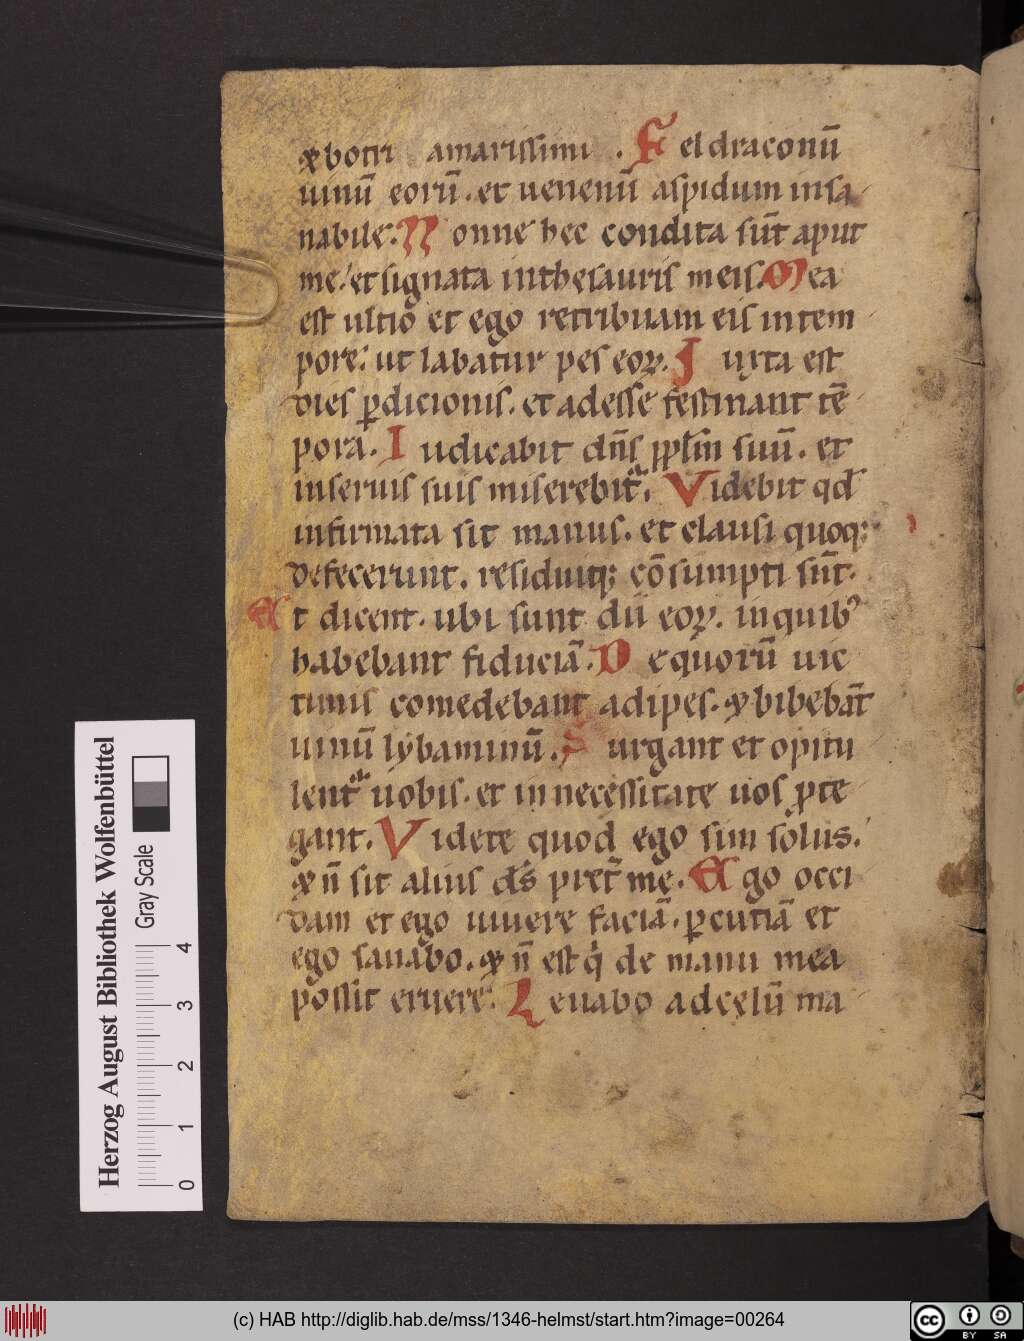 ⁊ botri amarissimi . Fel draconū
uinū eorū . et uenenū aspidum insa-
nabile . Nonne hec condita sūt aput
me . et signata in thesauris meis . Mea
est ultio et ego retribuam eis in tem-
pore . ut labatur pes eoꝝ . Iuxta est
dies ꝑdicionis . et adesse festinant tē-
pora . Iudicabit dn̄s pplm̄ suū . et
in seruis suis miserebit᷑ . Videbit qd̄
infirmata sit manus . et clausi quoq;
defecerunt . residuiq; cōsumpti sūt .
Et dicent . ubi sunt dii eoꝝ . in quibꝰ
habebant fiduciā . De quorū uic-
timis comedebant adipes . ⁊ bibebāt
uinū lybaminū . Surgant et opitu-
lent᷑ uobis . et in necessitate uos ꝓte-
gant . Videte quod ego sim solus .
⁊ n̄ sit alius ds̄ pret̄ me . Ego occi-
dam et ego uiuere faciā . ꝑcutiā et
ego sanabo . ⁊ n̄ est qͥ de manu mea
possit eruere . Leuabo ad cęlū ma-
Herzog August Bibliothek Wolfenbüttel
Gray Scale
0 1 2 3 4
(c) HAB http://diglib.hab.de/mss/1346-helmst/start.htm?image=00264
cc BY SA